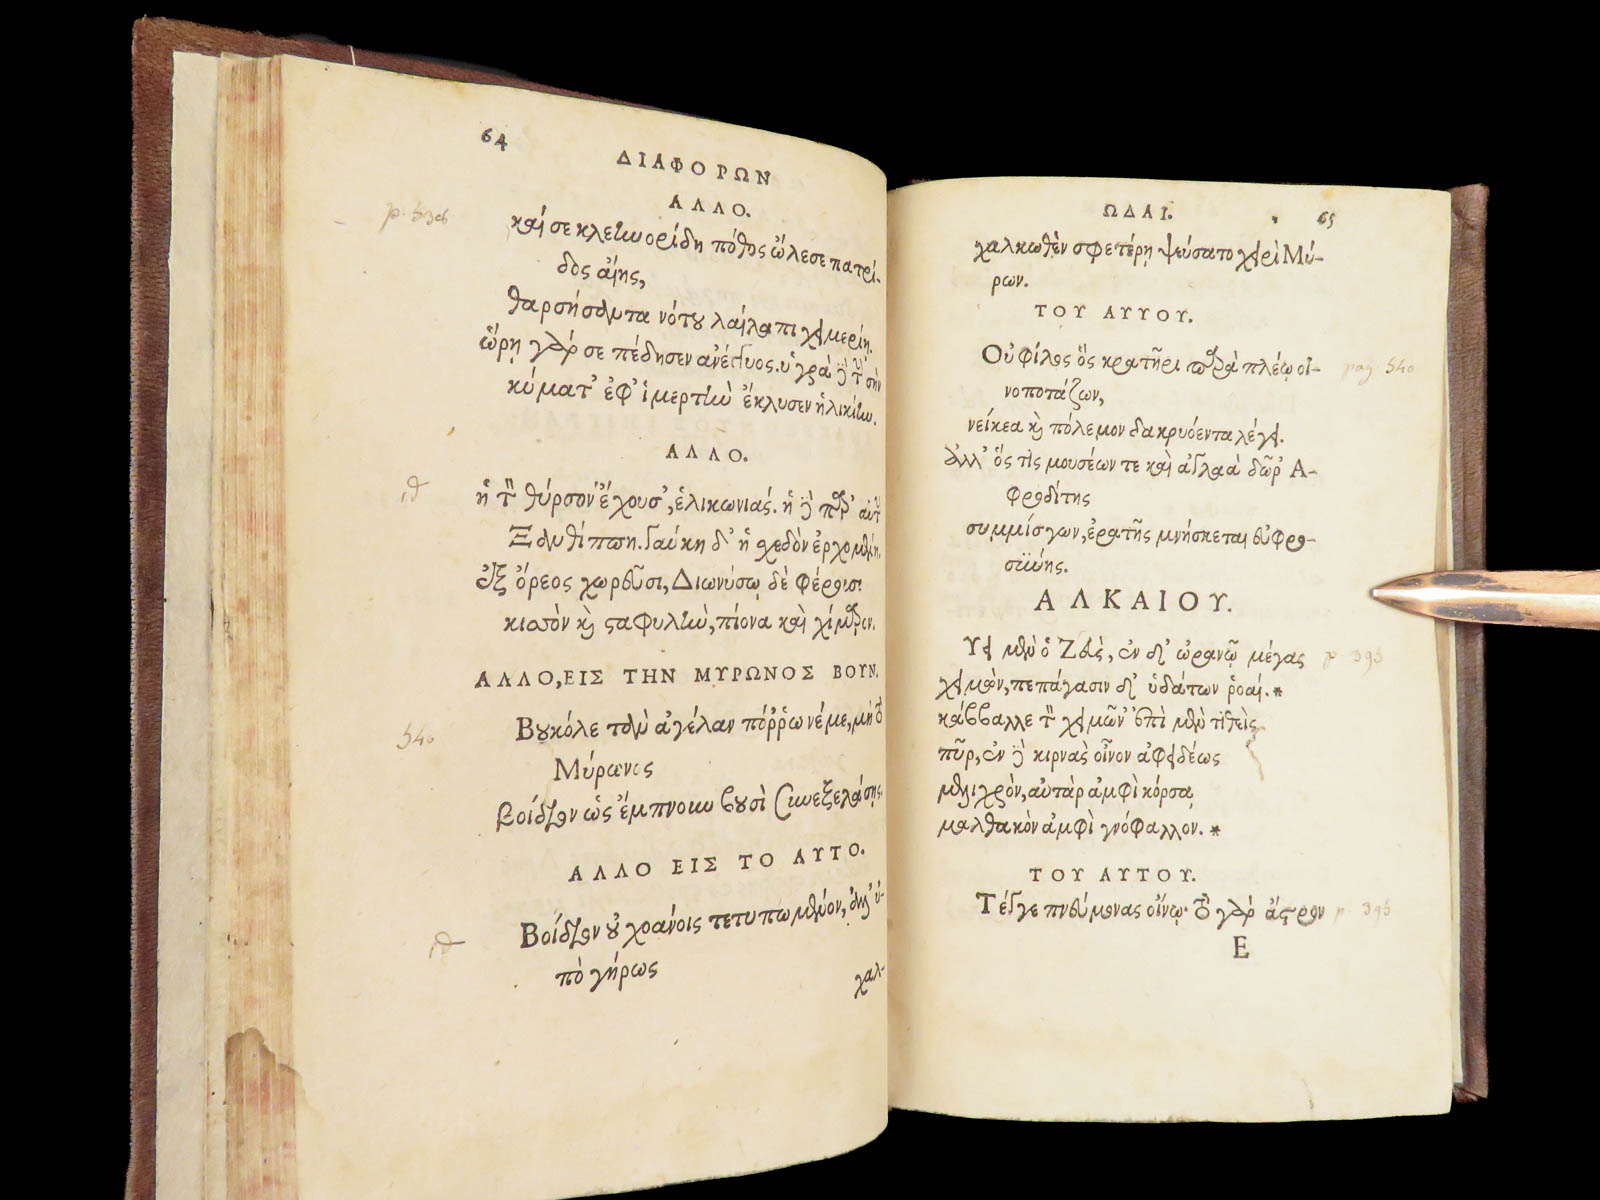 64
ΔΙΑΦΟΡΩΝ
ΑΛΛΟ.
p. 536
καί σε κλεηνορίδη πόθος ὤλεσε πατρί-
δος αἴης,
θαρσήσαντα νότου λαίλαπι χειμερίη.
ὥρη γάρ σε πέδησεν ἀνέγγυος. ὑγρὰ δὲ τὴν σὴν
κύματ' ἐφ' ἱμερτὴν ἔκλυσεν ἡλικίην.
ΑΛΛΟ.
ἡ τὸν θύρσον ἔχουσ', ἑλικωνιάς. ἡ δὲ παρ' αὐτὴν
Ξανθίππη. Γλαύκη δ' ἡ σχεδὸν ἐρχομένη.
ἐξ ὄρεος χωρεῦσι, Διωνύσῳ δὲ φέρουσι
κισσὸν καὶ σταφυλὴν, πίονα καὶ χίμαρον.
ΑΛΛΟ, ΕΙΣ ΤΗΝ ΜΥΡΩΝΟΣ ΒΟΥΝ.
540
Βουκόλε τὰν ἀγέλαν πόῤῥω νέμε, μὴ τὸ
Μύρωνος
βοίδιον ὡς ἔμπνουν βουσὶ συνεξελάσης.
ΑΛΛΟ ΕΙΣ ΤΟ ΑΥΤΟ.
Βοίδιον οὐ χοάνοις τετυπωμένον, ἀλλ' ὑ-
πὸ γήρως
χαλ-
ΩΔΑΙ.
65
χαλκωθὲν σφετέρη ψεύσατο χειρὶ Μύ-
ρων.
ΤΟΥ ΑΥΥΟΥ.
Οὐ φίλος ὃς κρατῆρι παρὰ πλέῳ οἰ-
νοποτάζων,
pag 540
νείκεα καὶ πόλεμον δακρυόεντα λέγει.
ἀλλ' ὅς τις μουσέων τε καὶ ἀγλαὰ δῶρ' Α-
φροδίτης
συμμίσγων, ἐρατῆς μνήσκεται εὐφρο-
σύνης.
ΑΛΚΑΙΟΥ.
Υει μὲν ὁ Ζεὺς, ἐν δ' ὠρανῷ μέγας
p 395
χειμὼν, πεπάγασιν δ' ὑδάτων ῥοαί. *
κάββαλλε τὸν χειμῶν' ἐπὶ μὲν τιθεὶς
πῦρ, ἐν δὲ κιρνὰς οἶνον ἀφειδέως
μελιχρὸν, αὐτὰρ ἀμφὶ κόρσα
μαλθακὸν ἀμφὶ γνόφαλλον. *
ΤΟΥ ΑΥΤΟΥ.
Τέγγε πνεύμονας οἴνῳ· τὸ γὰρ ἄστρον
p 395
E